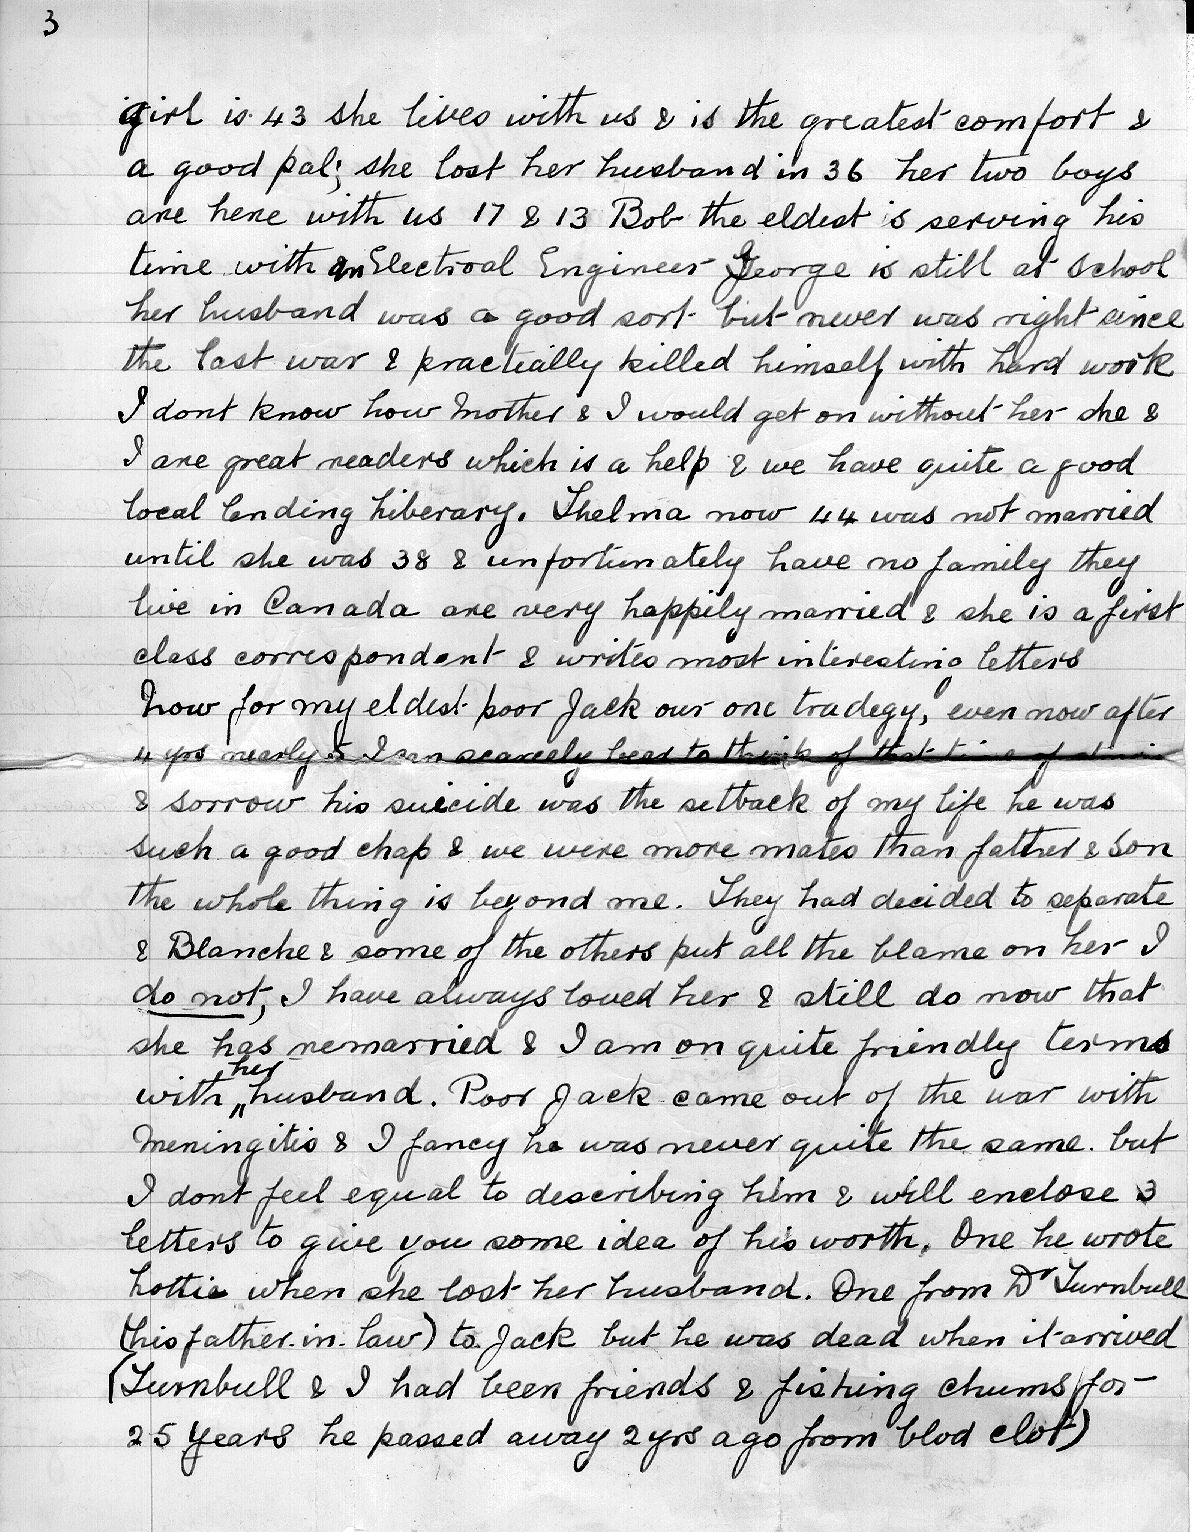 3
girl is 43 she lives with us & is the greatest comfort &
a good pal; she lost her husband in 36 her two boys
are here with us 17 & 13 Bob the eldest is serving his
time with an Electroal Engineer George is still at School
her husband was a good sort but never was right since
the last war & practially killed himself with hard work
I dont know how Mother & I would get on without her she &
I are great readers which is a help & we have quite a good
local lending liberary. Thelma now 44 was not married
until she was 38 & unfortunately have no family they
live in Canada are very happily married & she is a first
class correspondent & writes most interesting letters
Now for my eldest poor Jack our one tradegy, even now after
4 yrs nearly 5 I can scarcely bear to think of that time of
& sorrow his suicide was the setback of my life he was
such a good chap & we were more mates than father & Son
the whole thing is beyond me. They had decided to separate
& Blanche & some of the others put all the blame on her I
do not, I have always loved her & still do now that
she has remarried & I am on quite friendly terms
with her husband. Poor Jack came out of the war with
Meningitis & I fancy he was never quite the same. but
I dont feel equal to describing him & will enclose 3
letters to give you some idea of his worth. One he wrote
Lottie when she lost her husband. One from Dr Turnbull
(his father. in. law) to Jack but he was dead when it arrived
(Turnbull & I had been friends & fishing chums for
25 Years he passed away 2 yrs ago from blod clot)